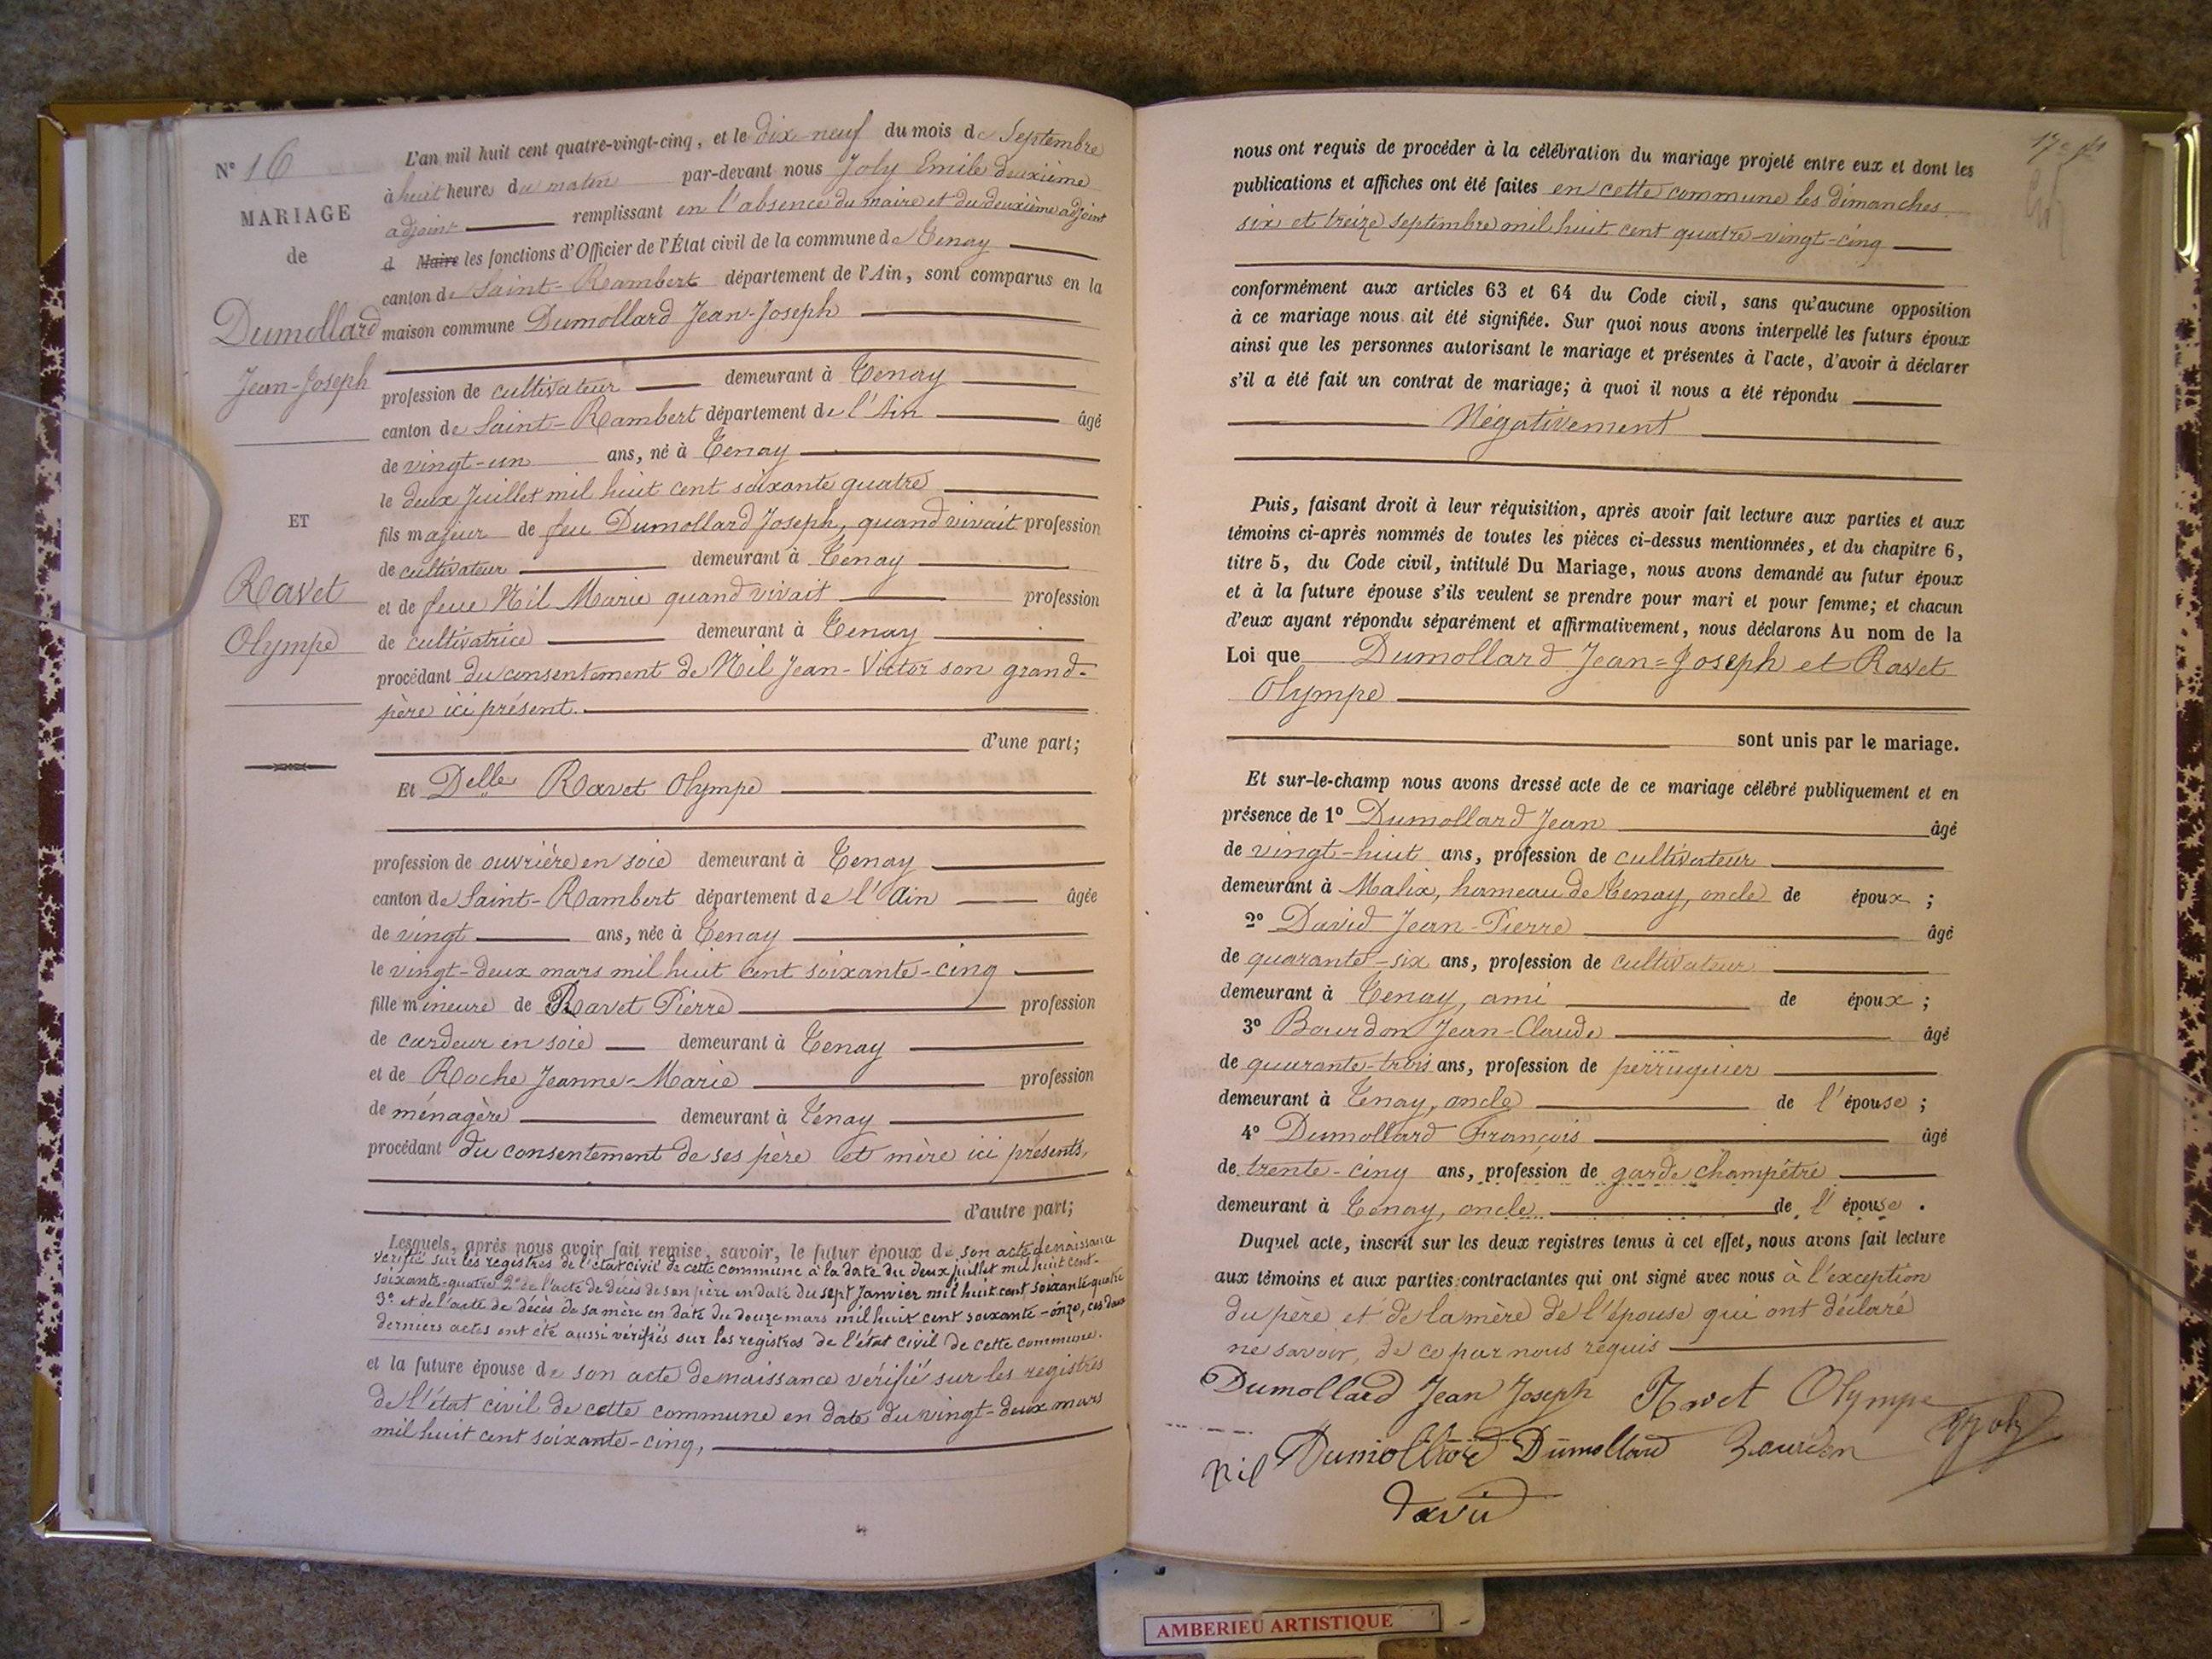 N° 16
MARIAGE
de
Dumollard
Jean-Joseph
ET
Ravet
Olympe
L'an mil huit cent quatre-vingt-cinq, et le dix-neuf du mois de Septembre
à huit heures du matin par-devant nous Joly Emile deuxième
adjoint remplissant en l'absence du maire et du deuxième adjoint
d Maire les fonctions d'Officier de l'État civil de la commune de Tenay
canton de Saint-Rambert département de l'Ain, sont comparus en la
maison commune Dumollard Jean-Joseph
profession de cultivateur demeurant à Tenay
canton de Saint-Rambert département de l'Ain âgé
de vingt-un ans, né à Tenay
le deux Juillet mil huit cent soixante quatre
fils majeur de feu Dumollard Joseph, quand vivait profession
de cultivateur demeurant à Tenay
et de feue Nil Marie quand vivait profession
de cultivatrice demeurant à Tenay
procédant du consentement de Nil Jean-Victor son grand-
père ici présent.
d'une part;
Et Delle Ravet Olympe
profession de ouvrière en soie demeurant à Tenay
canton de Saint-Rambert département de l'Ain âgée
de vingt ans, née à Tenay
le vingt-deux mars mil huit cent soixante-cinq
fille mineure de Ravet Pierre profession
de cardeur en soie demeurant à Tenay
et de Roche Jeanne-Marie profession
de ménagère demeurant à Tenay
procédant du consentement de ses père et mère ici présents,
d'autre part;
Lesquels, après nous avoir fait remise, savoir, le futur époux de son acte de naissance
vérifié sur les registres de l'état civil de cette commune à la date du deux juillet mil huit cent-
soixante-quatre 2° de l'acte de décès de son père en date du sept Janvier mil huit cent soixante quatre
3° et de l'acte de décès de sa mère en date du douze mars mil huit cent soixante-onze, ces deux
derniers actes ont été aussi vérifiés sur les registres de l'état civil de cette commune.
et la future épouse de son acte de naissance vérifié sur les registres
de l'état civil de cette commune en date du vingt-deux mars
mil huit cent soixante-cinq,
nous ont requis de procéder à la célébration du mariage projeté entre eux et dont les
publications et affiches ont été faites en cette commune les dimanches
six et treize septembre mil huit cent quatre-vingt-cinq
conformément aux articles 63 et 64 du Code civil, sans qu'aucune opposition
à ce mariage nous ait été signifiée. Sur quoi nous avons interpellé les futurs époux
ainsi que les personnes autorisant le mariage et présentes à l'acte, d'avoir à déclarer
s'il a été fait un contrat de mariage; à quoi il nous a été répondu
Négativement
Puis, faisant droit à leur réquisition, après avoir fait lecture aux parties et aux
témoins ci-après nommés de toutes les pièces ci-dessus mentionnées, et du chapitre 6,
titre 5, du Code civil, intitulé Du Mariage, nous avons demandé au futur époux
et à la future épouse s'ils veulent se prendre pour mari et pour femme; et chacun
d'eux ayant répondu séparément et affirmativement, nous déclarons Au nom de la
Loi que Dumollard Jean-Joseph et Ravet
Olympe
sont unis par le mariage.
Et sur-le-champ nous avons dressé acte de ce mariage célébré publiquement et en
présence de 1° Dumollard Jean âgé
de vingt-huit ans, profession de cultivateur
demeurant à Malix, hameau de Tenay, oncle de époux ;
2° David Jean-Pierre âgé
de quarante-six ans, profession de cultivateur
demeurant à Tenay, ami de époux ;
3° Bourdon Jean-Claude âgé
de quarante-trois ans, profession de perruquier
demeurant à Tenay, oncle de l'épouse ;
4° Dumollard François âgé
de trente-cinq ans, profession de garde champêtre
demeurant à Tenay, oncle de l'épouse .
Duquel acte, inscrit sur les deux registres tenus à cet effet, nous avons fait lecture
aux témoins et aux parties contractantes qui ont signé avec nous à l'exception
du père et de la mère de l'épouse qui ont déclaré
ne savoir, de ce par nous requis
Dumollard Jean Joseph Ravet Olympe
Nil Dumollard Dumollard Bourdon Joly
David
AMBERIEU ARTISTIQUE